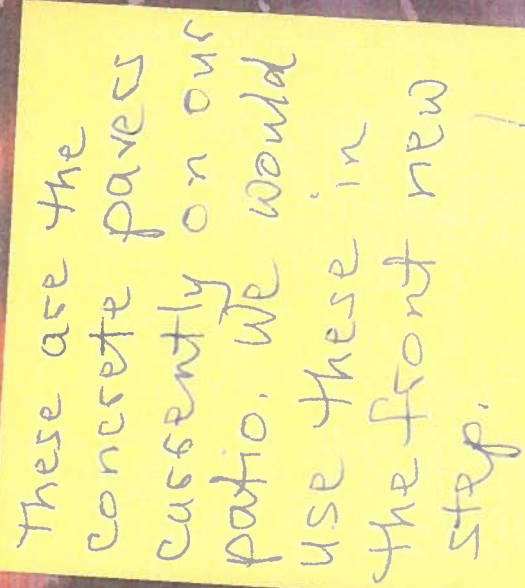 These are the
concrete pavers
currently on our
patio. We would
use these in
the front new
step.